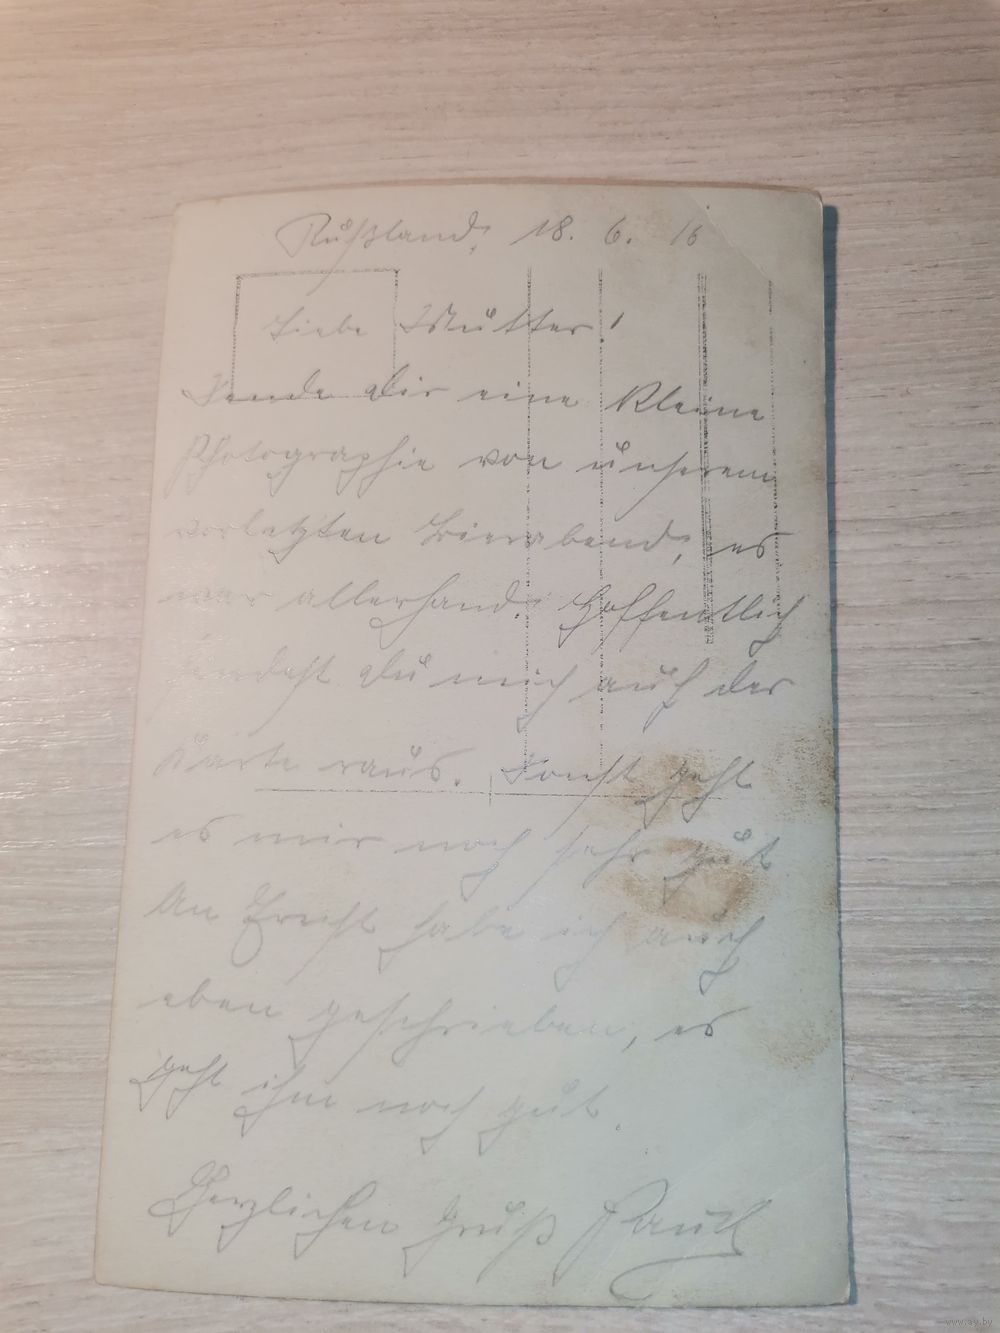 Rußland, 18. 6. 16
Liebe Mutter!
Sende Dir eine kleine
Photographie von unserem
vorletzten Bierabend, es
war allerhand. Hoffentlich
findest Du mich auf der
Karte raus. Sonst geht
es mir noch sehr gut
An habe ich auch
eben geschrieben, es
geht ihm noch gut.
Herzlichen Gruß Paul
www.ay.by